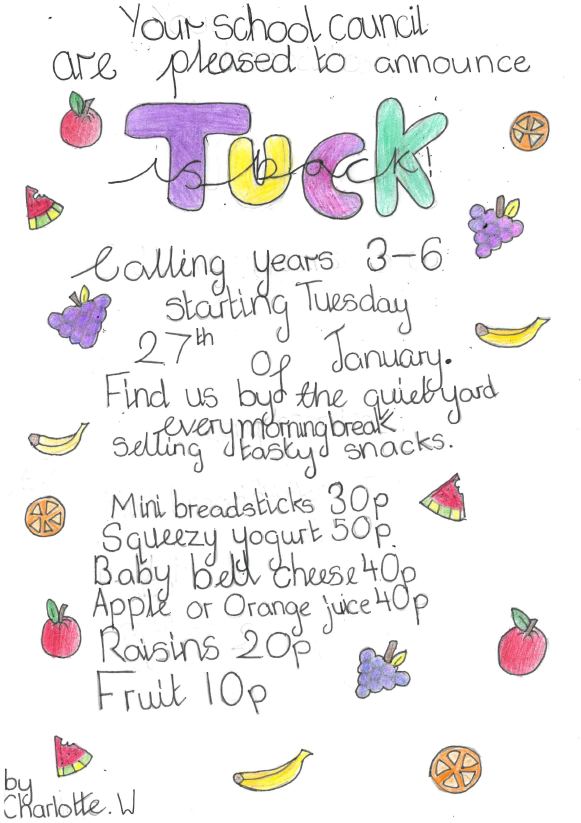 Your school council
are pleased to announce
TUCK
is back!
Calling years 3-6
starting Tuesday
27th of January.
Find us by the quiet yard
every morning break
selling tasty snacks.
Mini breadsticks 30p
Squeezy yogurt 50p.
Baby bell cheese 40p
Apple or Orange juice 40p
Raisins 20p
Fruit 10p
by
Charlotte. W